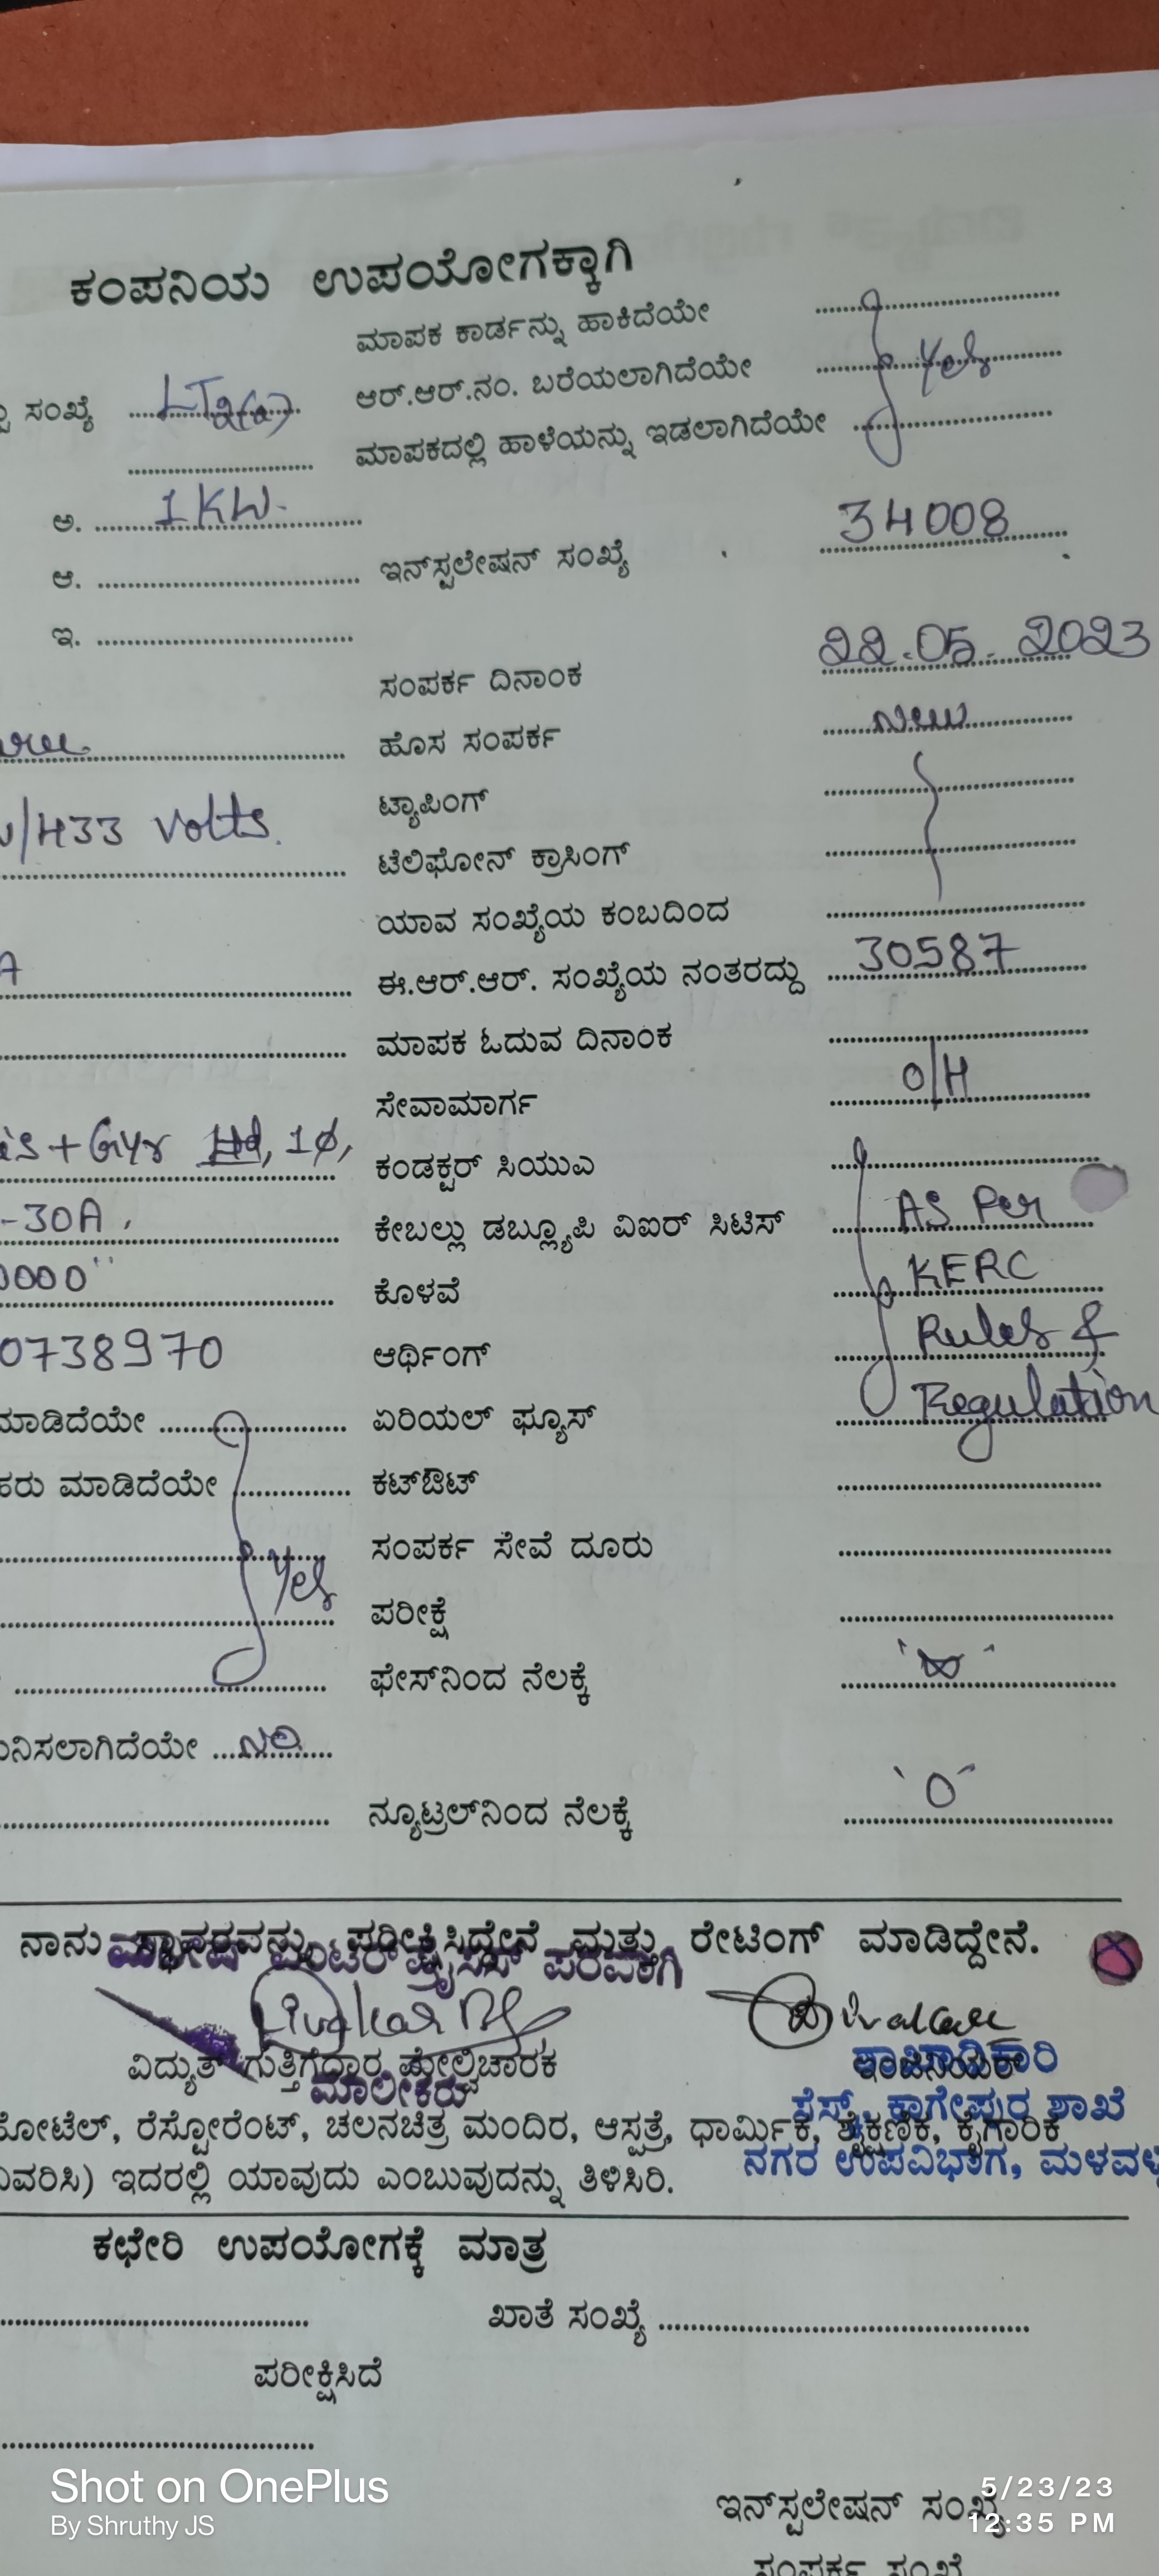 ಕಂಪನಿಯ ಉಪಯೋಗಕ್ಕಾಗಿ
ಮಾಪಕ ಕಾರ್ಡನ್ನು ಹಾಕಿದೆಯೇ
ಆರ್.ಆರ್.ನಂ. ಬರೆಯಲಾಗಿದೆಯೇ Yes
ಸಂಖ್ಯೆ LT2(a)
ಮಾಪಕದಲ್ಲಿ ಹಾಳೆಯನ್ನು ಇಡಲಾಗಿದೆಯೇ
ಅ. 1KW.
ಆ. ಇನ್‌ಸ್ಟಲೇಷನ್ ಸಂಖ್ಯೆ 34008
ಇ.
ಸಂಪರ್ಕ ದಿನಾಂಕ 22.05.2023
ಹೊಸ ಸಂಪರ್ಕ New
ಟ್ಯಾಪಿಂಗ್
/433 Volts.
ಟೆಲಿಫೋನ್ ಕ್ರಾಸಿಂಗ್
ಯಾವ ಸಂಖ್ಯೆಯ ಕಂಬದಿಂದ
A ಈ.ಆರ್.ಆರ್. ಸಂಖ್ಯೆಯ ನಂತರದ್ದು 30587
ಮಾಪಕ ಓದುವ ದಿನಾಂಕ
ಸೇವಾಮಾರ್ಗ O/H
is + Gyr Ltd, 1ø, ಕಂಡಕ್ಟರ್ ಸಿಯುಎ
-30A, ಕೇಬಲ್ಲು ಡಬ್ಲ್ಯೂಪಿ ವಿಐರ್ ಸಿಟಿಸ್ AS Per
0000" ಕೊಳವೆ KERC
0738970 ಆರ್ಥಿಂಗ್ Rules &
ಮಾಡಿದೆಯೇ ಏರಿಯಲ್ ಫ್ಯೂಸ್ Regulation
ಹರು ಮಾಡಿದೆಯೇ ಕಟ್‌ಔಟ್
ಸಂಪರ್ಕ ಸೇವೆ ದೂರು
Yes ಪರೀಕ್ಷೆ
ಫೇಸ್‌ನಿಂದ ನೆಲಕ್ಕೆ
ನಿಸಲಾಗಿದೆಯೇ No
ನ್ಯೂಟ್ರಲ್‌ನಿಂದ ನೆಲಕ್ಕೆ 'O'
ನಾನು ಸ್ಥಾವರವನ್ನು ಪರೀಕ್ಷಿಸಿದ್ದೇನೆ ಮತ್ತು ರೇಟಿಂಗ್ ಮಾಡಿದ್ದೇನೆ.
ಎಂಟರ್‌ಪ್ರೈಸಸ್ ಪರವಾಗಿ
ವಿದ್ಯುತ್ ಗುತ್ತಿಗೆದಾರ ಮೇಲ್ವಿಚಾರಕ ಇಂಜಿನಿಯರ್
ಶಾಖಾಧಿಕಾರಿ
ಮಾಲೀಕರು
ಸೆಸ್ಕ್, ಕಾಗೇಪುರ ಶಾಖೆ
ಹೋಟೆಲ್, ರೆಸ್ಟೋರೆಂಟ್, ಚಲನಚಿತ್ರ ಮಂದಿರ, ಆಸ್ಪತ್ರೆ, ಧಾರ್ಮಿಕ, ಶೈಕ್ಷಣಿಕ, ಕೈಗಾರಿಕೆ
ನಗರ ಉಪವಿಭಾಗ, ಮಳವಳ್ಳಿ
ವಿವರಿಸಿ) ಇದರಲ್ಲಿ ಯಾವುದು ಎಂಬುವುದನ್ನು ತಿಳಿಸಿರಿ.
ಕಛೇರಿ ಉಪಯೋಗಕ್ಕೆ ಮಾತ್ರ
ಖಾತೆ ಸಂಖ್ಯೆ
ಪರೀಕ್ಷಿಸಿದೆ
Shot on OnePlus
By Shruthy JS
ಇನ್‌ಸ್ಟಲೇಷನ್ ಸಂಖ್ಯೆ
5/23/23
12:35 PM
ಸಂಪರ್ಕ ಸಂಖ್ಯೆ